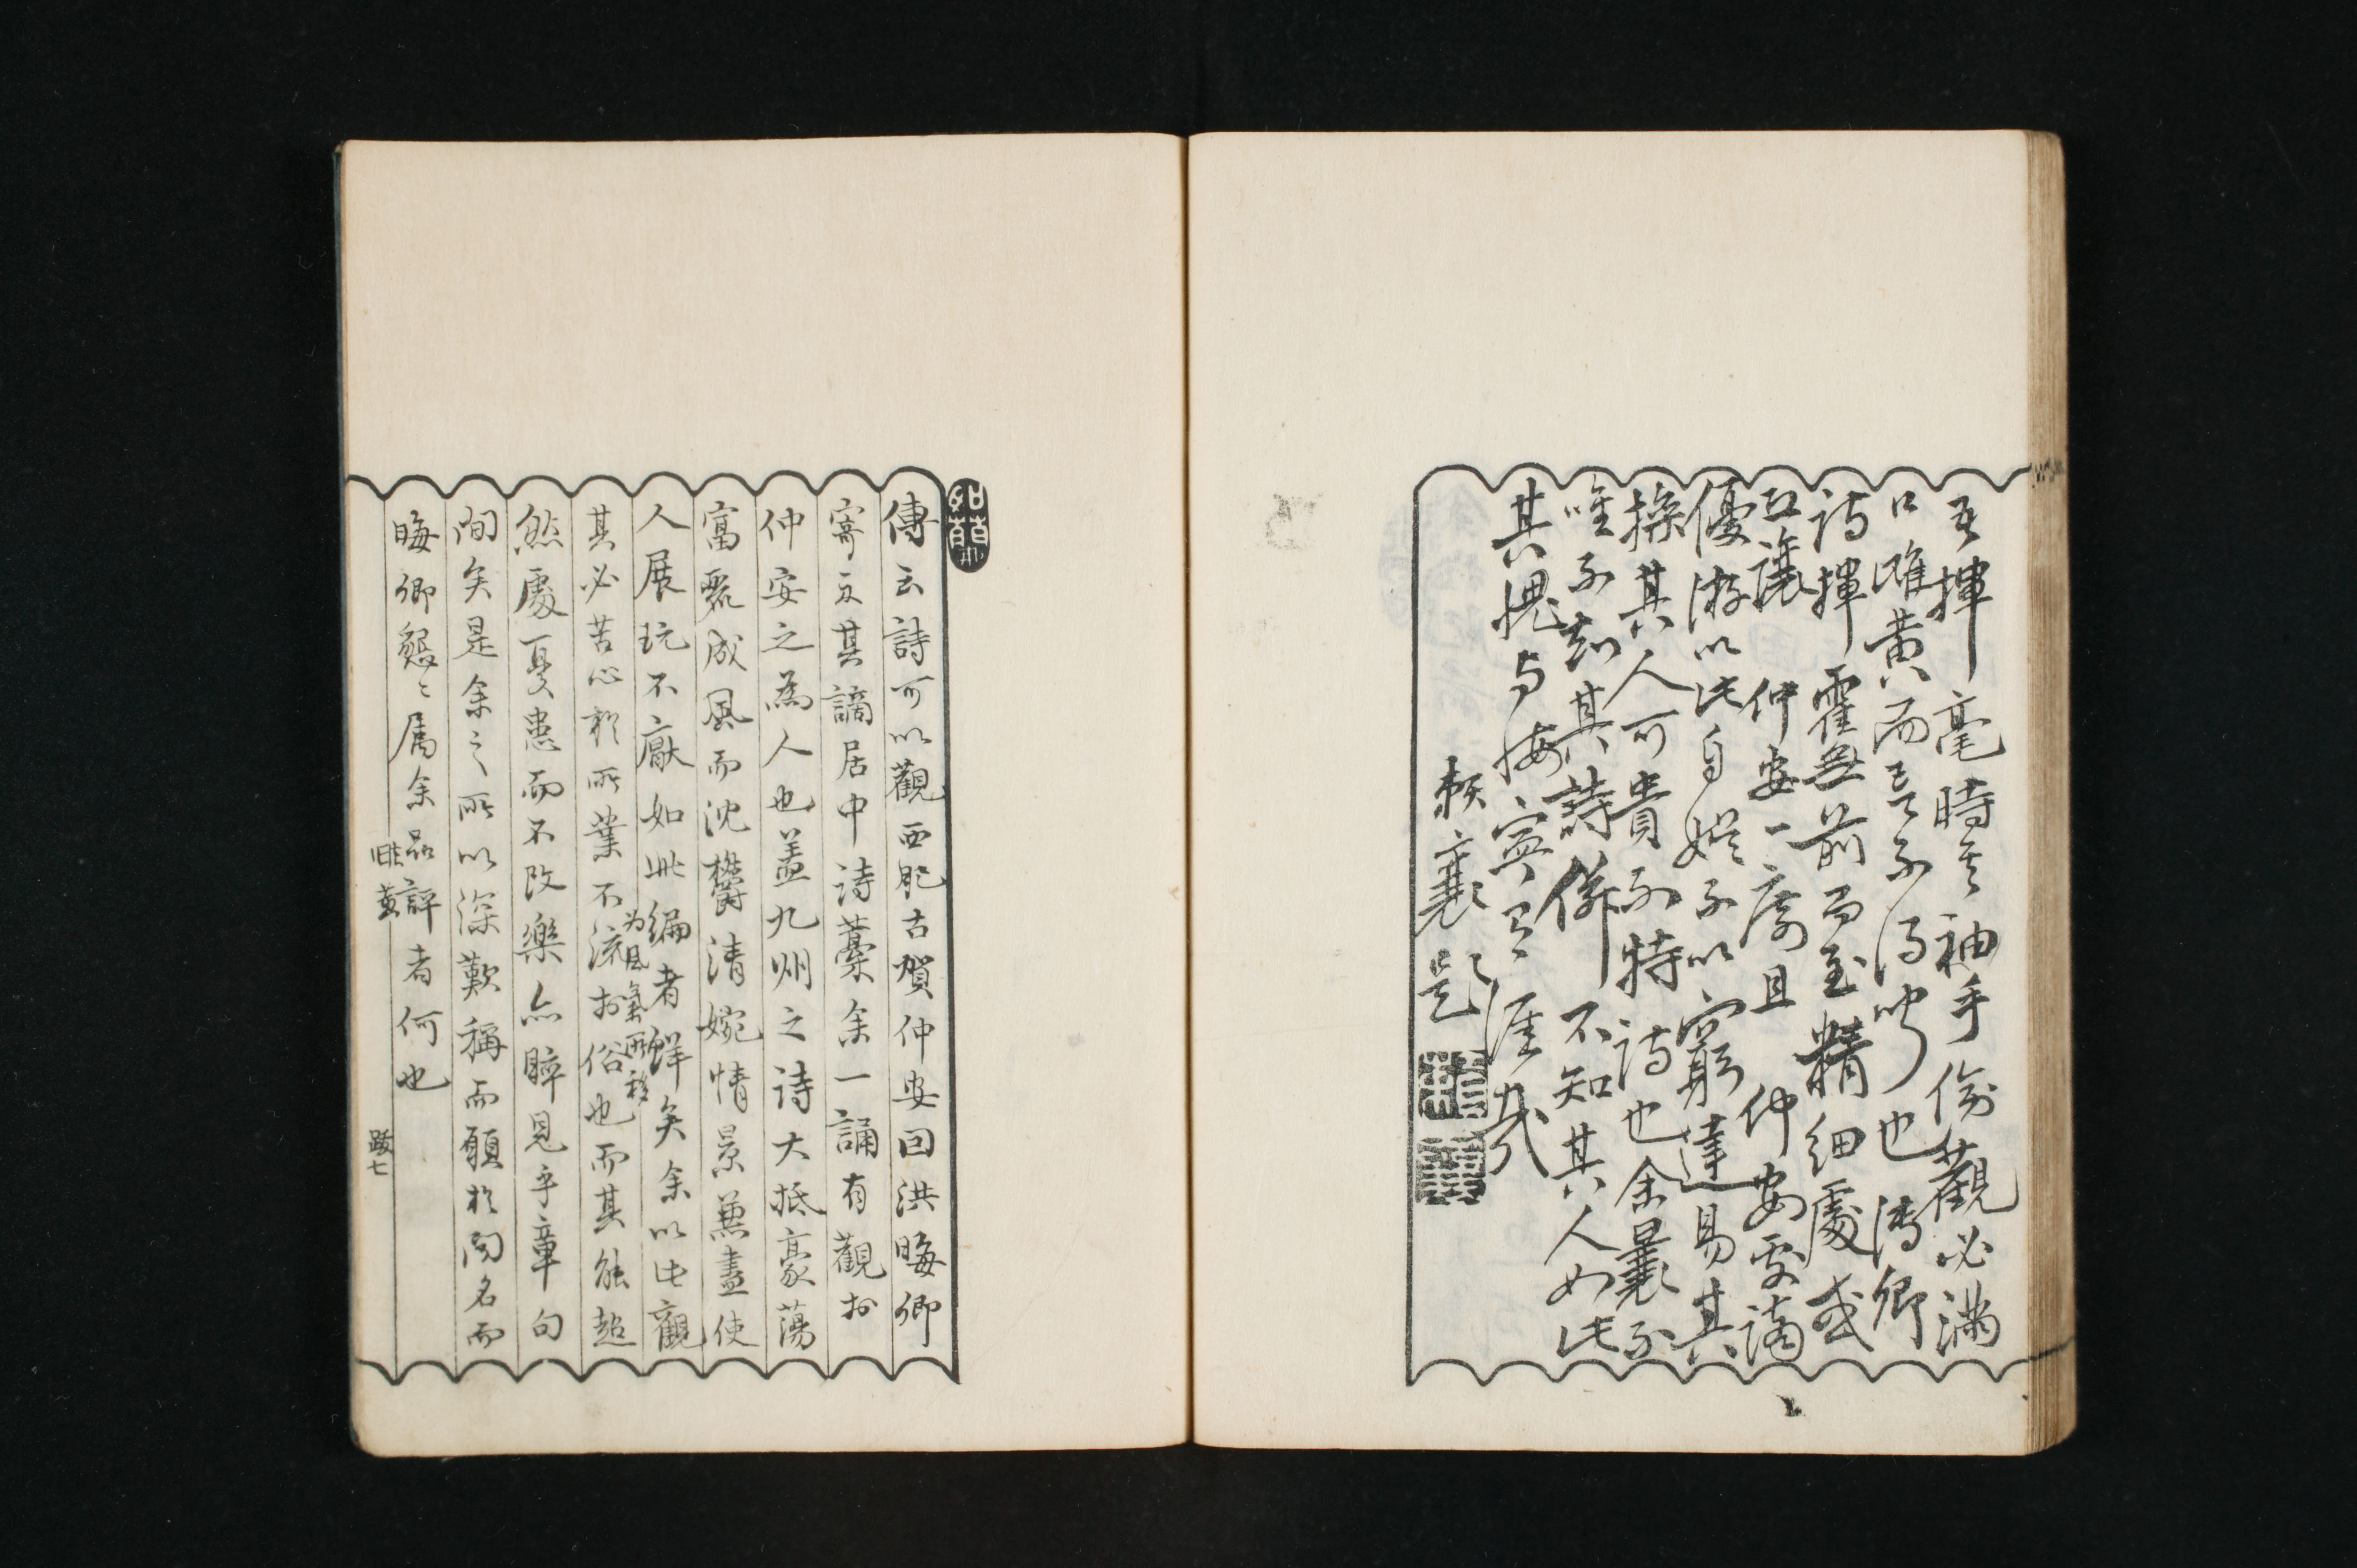 吾揮毫時無袖手傍觀必滿
口雌黃而言不得以也濤卿
詩揮霍無前而至精細處或
且讓仲安一席且仲安受謫
優游以此自娛不以窮達易其
操其人可貴不特詩也余曩不
唯不知其詩併不知其人如此
其愧與悔寧有涯哉
賴襄題
傳云詩可以觀西肥古賀仲安因洪晦卿
寄示其謫居中詩藁余一誦有觀於
仲安之為人也蓋九州之詩大抵豪蕩
富麗成風而沈欝清婉情景兼盡使
人展玩不厭如此編者鮮矣余以此觀
其必苦心於所業不為風氣所移流於俗也而其能超
然處憂患而不改樂亦睟見乎章句
間矣是余之所以深歎稱而願於闻名而
晦卿懇〻属余品評者何也
雌黃
跋七